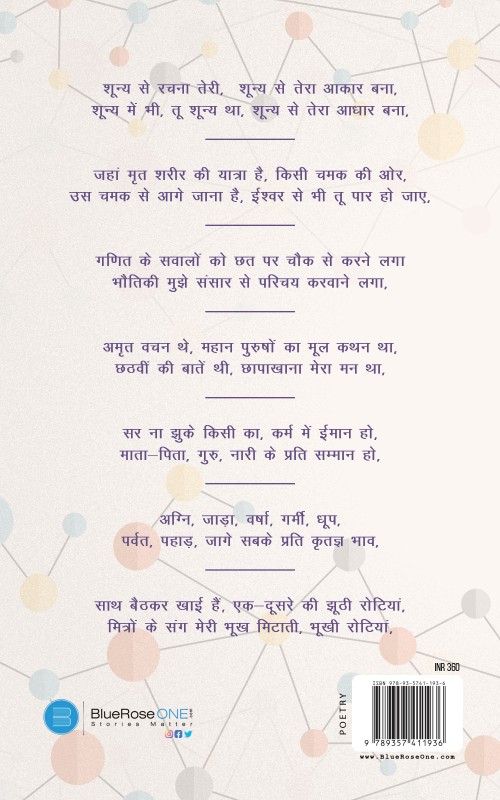 शून्य से रचना तेरी, शून्य से तेरा आकार बना,
शून्य में भी, तू शून्य था, शून्य से तेरा आधार बना,
जहां मृत शरीर की यात्रा है, किसी चमक की ओर,
उस चमक से आगे जाना है, ईश्वर से भी तू पार हो जाए,
गणित के सवालों को छत पर चौक से करने लगा
भौतिकी मुझे संसार से परिचय करवाने लगा,
अमृत वचन थे, महान पुरुषों का मूल कथन था,
छठवीं की बातें थी, छापाखाना मेरा मन था,
सर ना झुके किसी का, कर्म में ईमान हो,
माता–पिता, गुरु, नारी के प्रति सम्मान हो,
अग्नि, जाड़ा, वर्षा, गर्मी, धूप,
पर्वत, पहाड़, जागे सबके प्रति कृतज्ञ भाव,
साथ बैठकर खाई हैं, एक–दूसरे की झूठी रोटियां,
मित्रों के संग मेरी भूख मिटाती, भूखी रोटियां,
INR 360
POETRY
ISBN 978-93-5741-193-6
9 789357 411936
www.BlueRoseOne.com
BlueRoseONE.com
Stories Matter